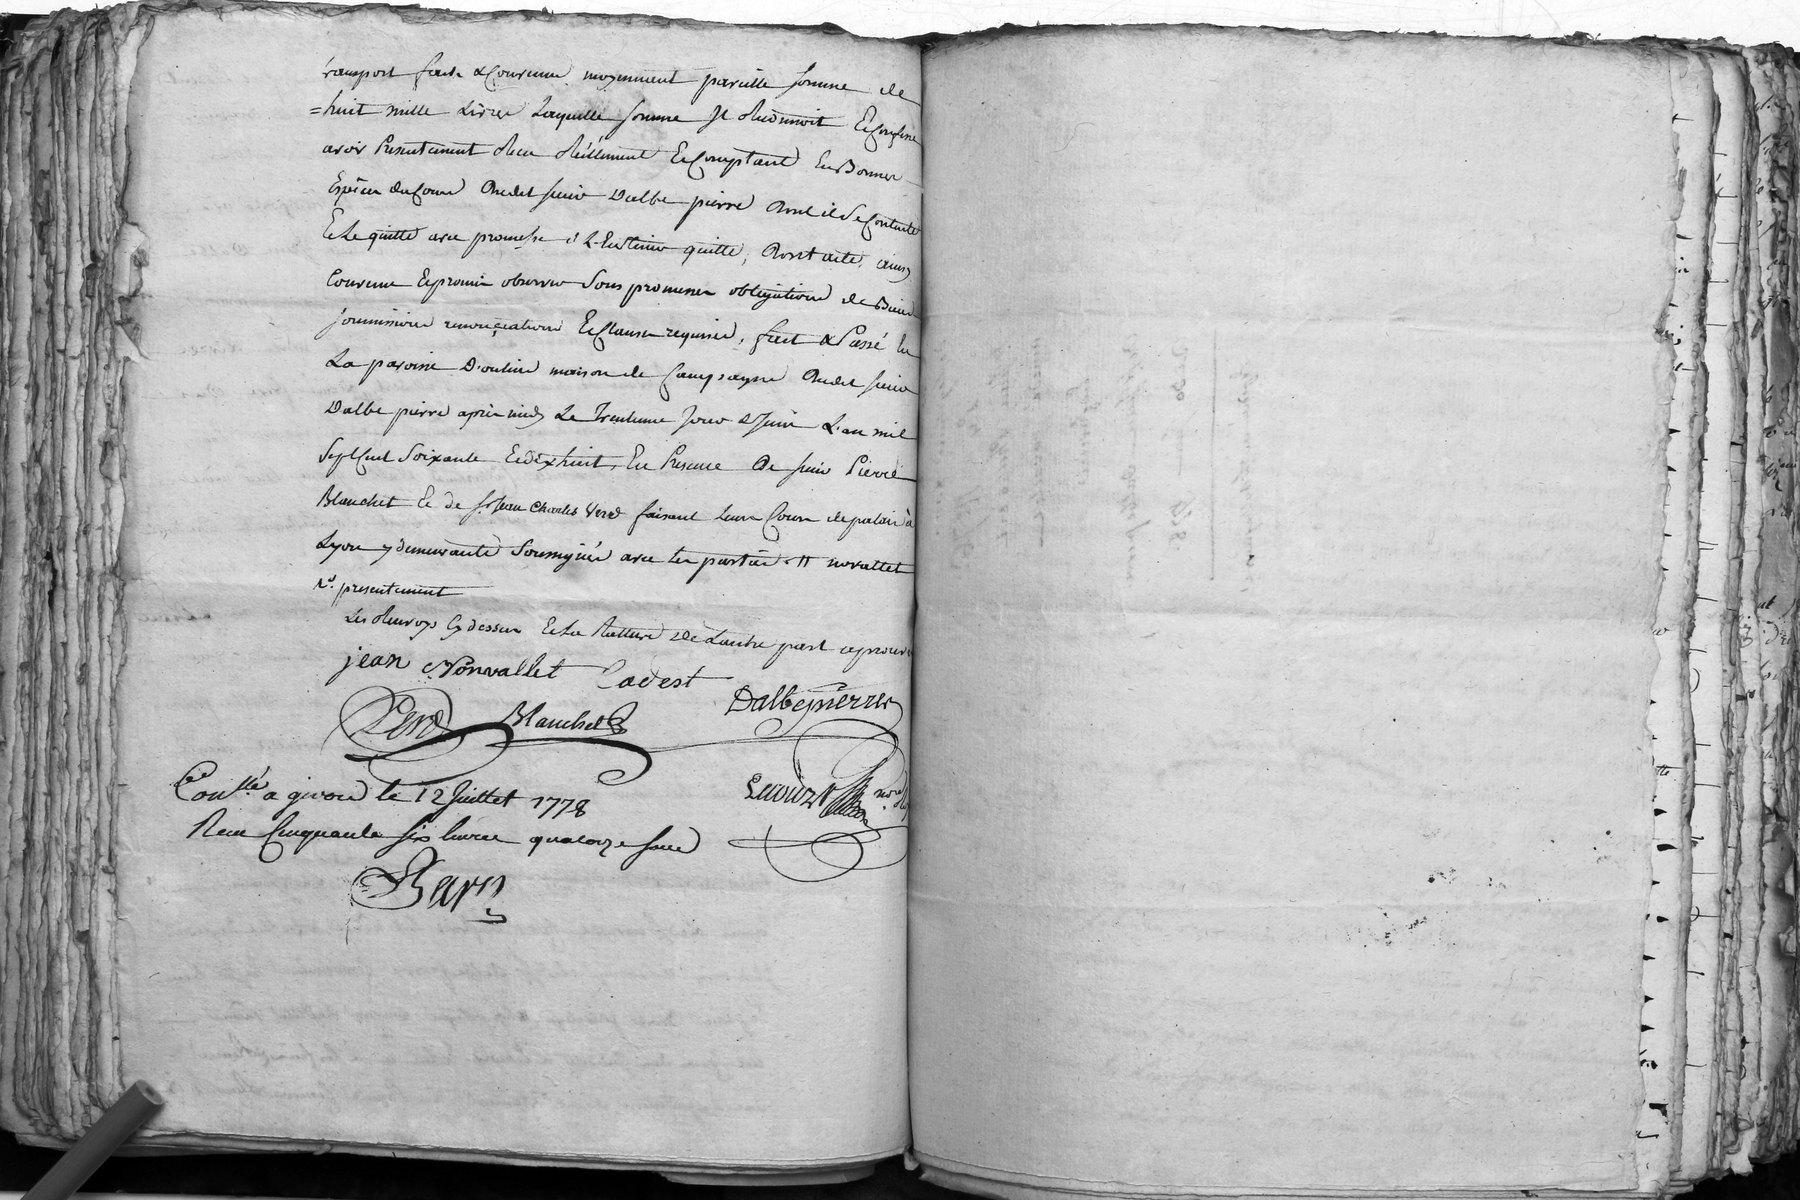 transport fait & Convenu moyennant pareille somme de
=huit mille Livres Laquelle somme Il Reconnoit Et Confesse
avoir Presentement Receu Réellement Et Comptant En Bonnes
Espèces du Cours Dudit sieur Dalbepierre Dont il Se Contente
Et Le quitte avec promesse L'En tenir quitte, Dont acte, ainsy
Convenu Et promis observer Sous promesses obligations de Biens
soumissions renonciations Et Clauses requises, fait & Passé En
La paroisse D'oulins maison de Campagne Dudit sieur
Dalbepierre après midy Le Trentieme Jour de Juin L'an mil
Sept Cent Soixante Et dix huit, En Presence De sieur Pierre
Blanchet Et de Sr Jean Charles Verd faisant Leurs Cours de palais à
Lyon y demeurants Soussignés avec Les parties. 11 norvallet
rd. presentement
Les Renvoys Cy dessus Et La Rature De L'autre part approuvés
jean Nonvallet Cadest Dalbepierre
Verd Blanchet
Conllé a givors le 12 Juillet 1778
Recu Cinquante six livres quatorze sous